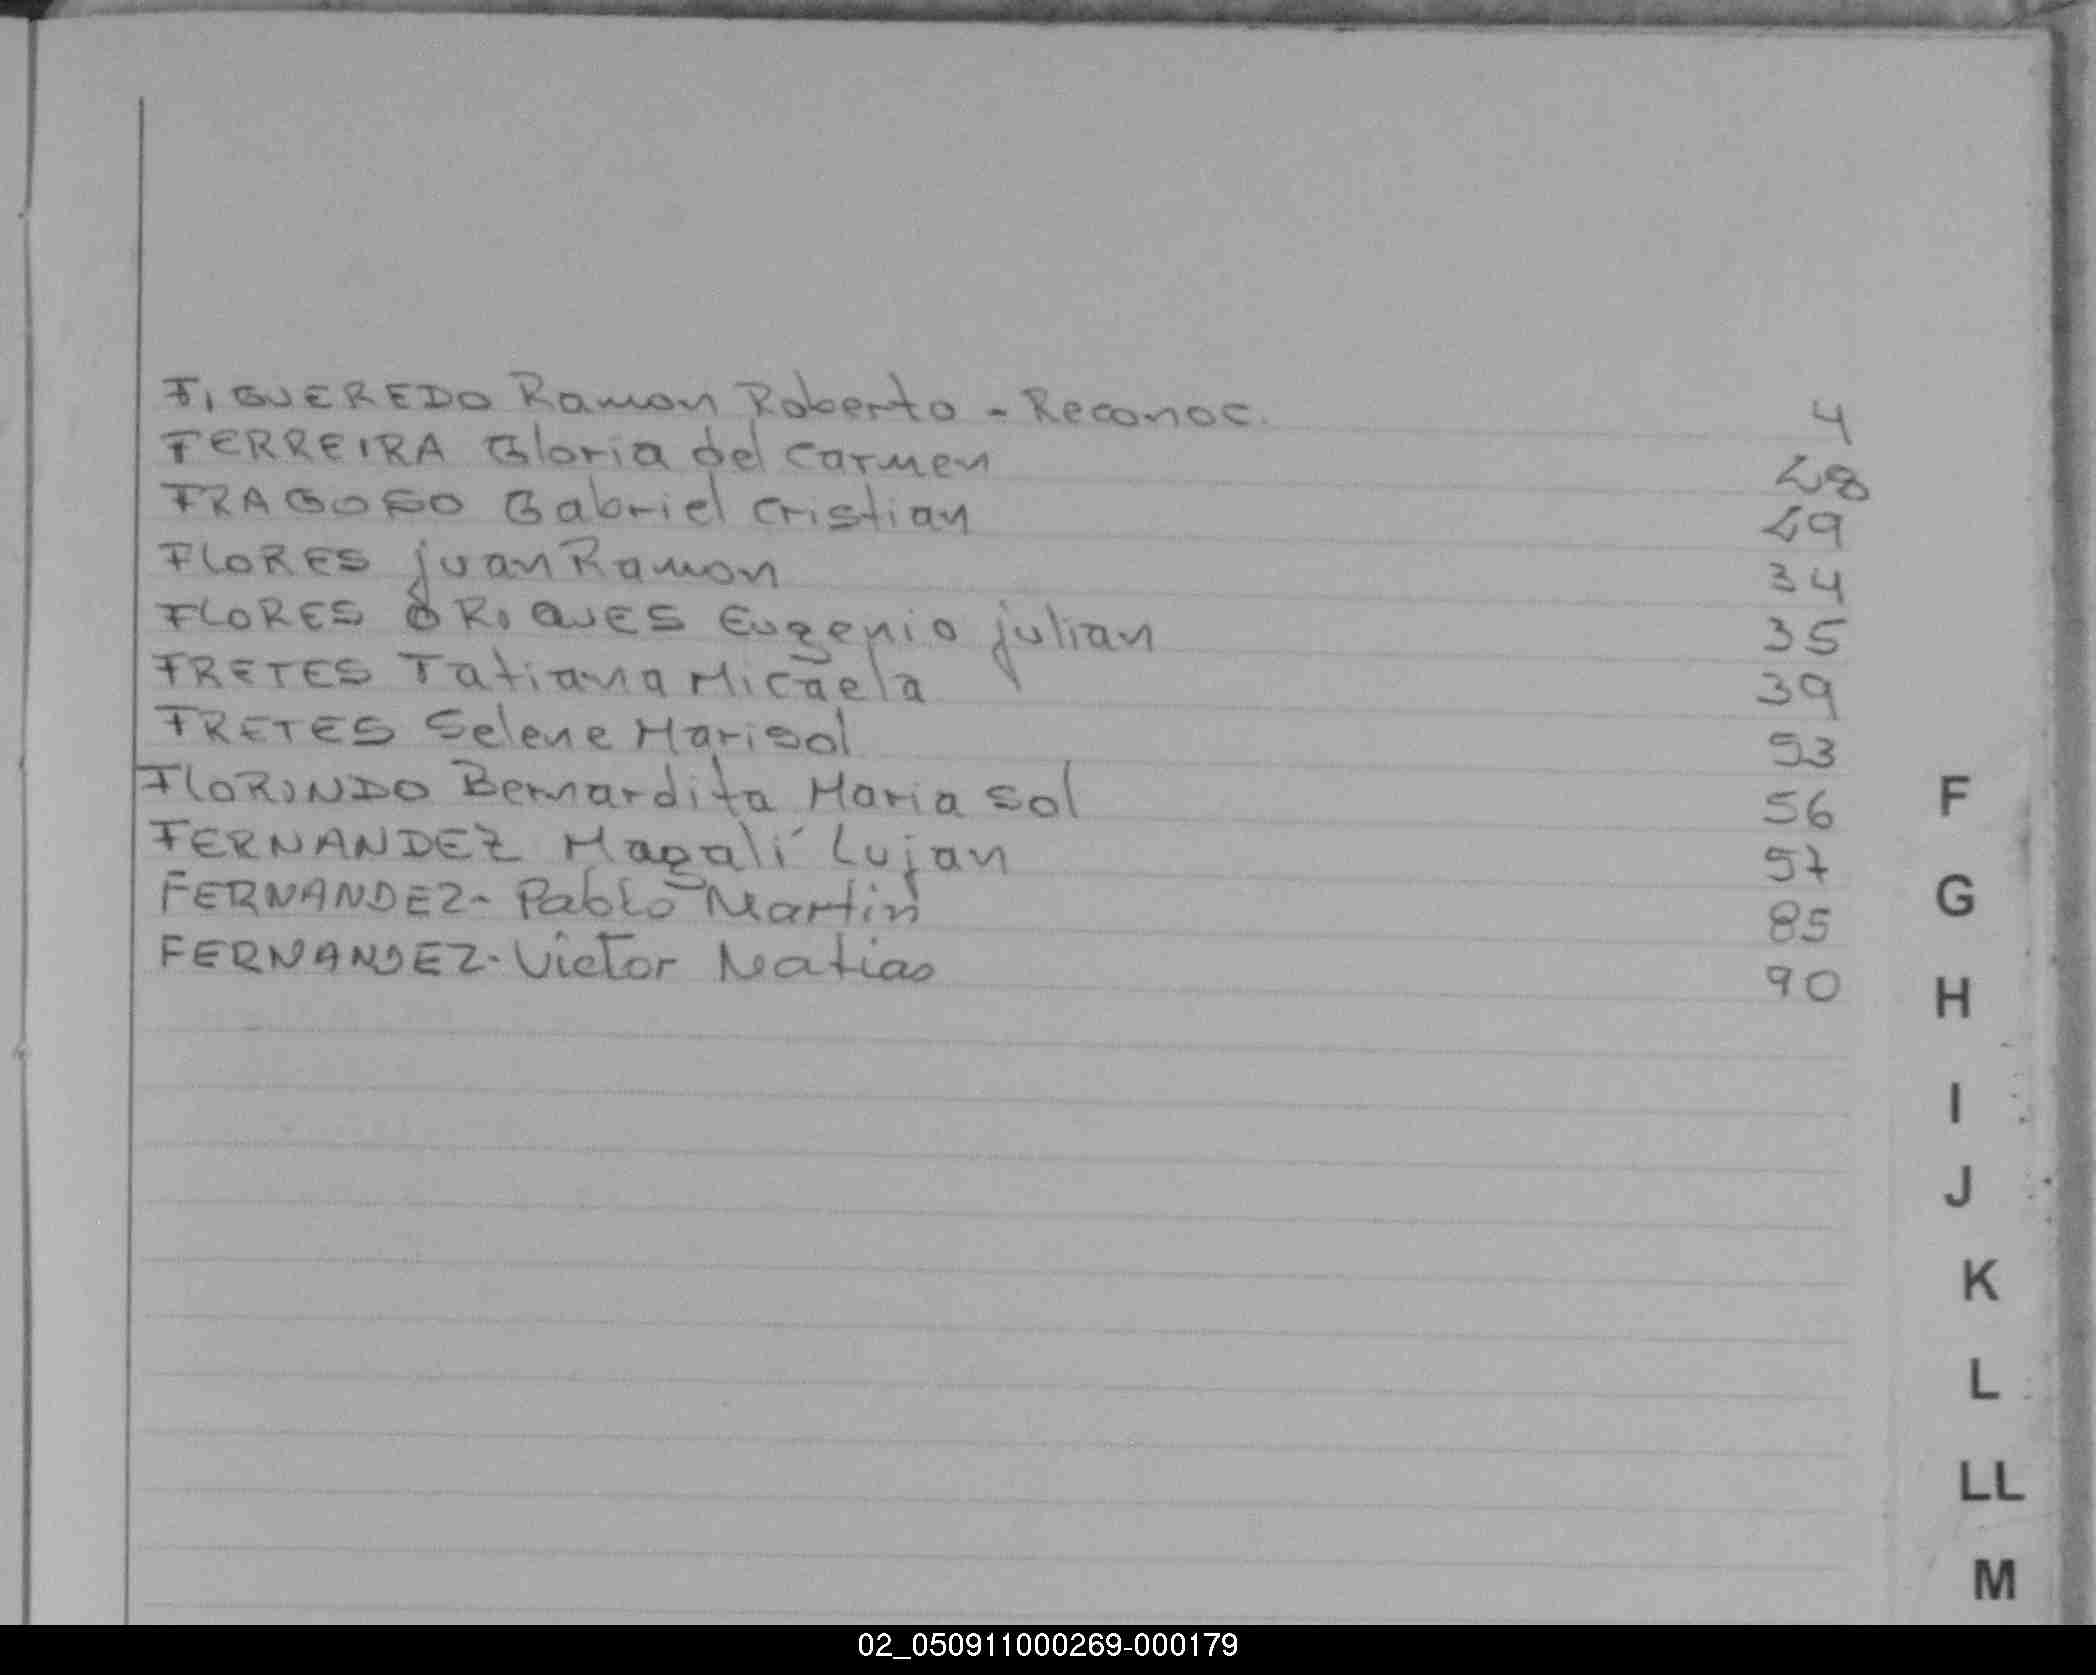 FIGUEREDO Ramon Roberto - Reconoc. 4
FERREIRA Gloria del Carmen 28
FRAGOSO Gabriel Cristian 29
FLORES Juan Ramon 34
FLORES ORIQUES Eugenio Julian 35
FRETES Tatiana Micaela 39
FRETES Selene Marisol 53
FLORINDO Bernardita Maria Sol 56
FERNANDEZ Magalí Lujan 57
FERNANDEZ - Pablo Martin 85
FERNANDEZ - Victor Matias 90
F
G
H
I
J
K
L
LL
M
02_050911000269-000179